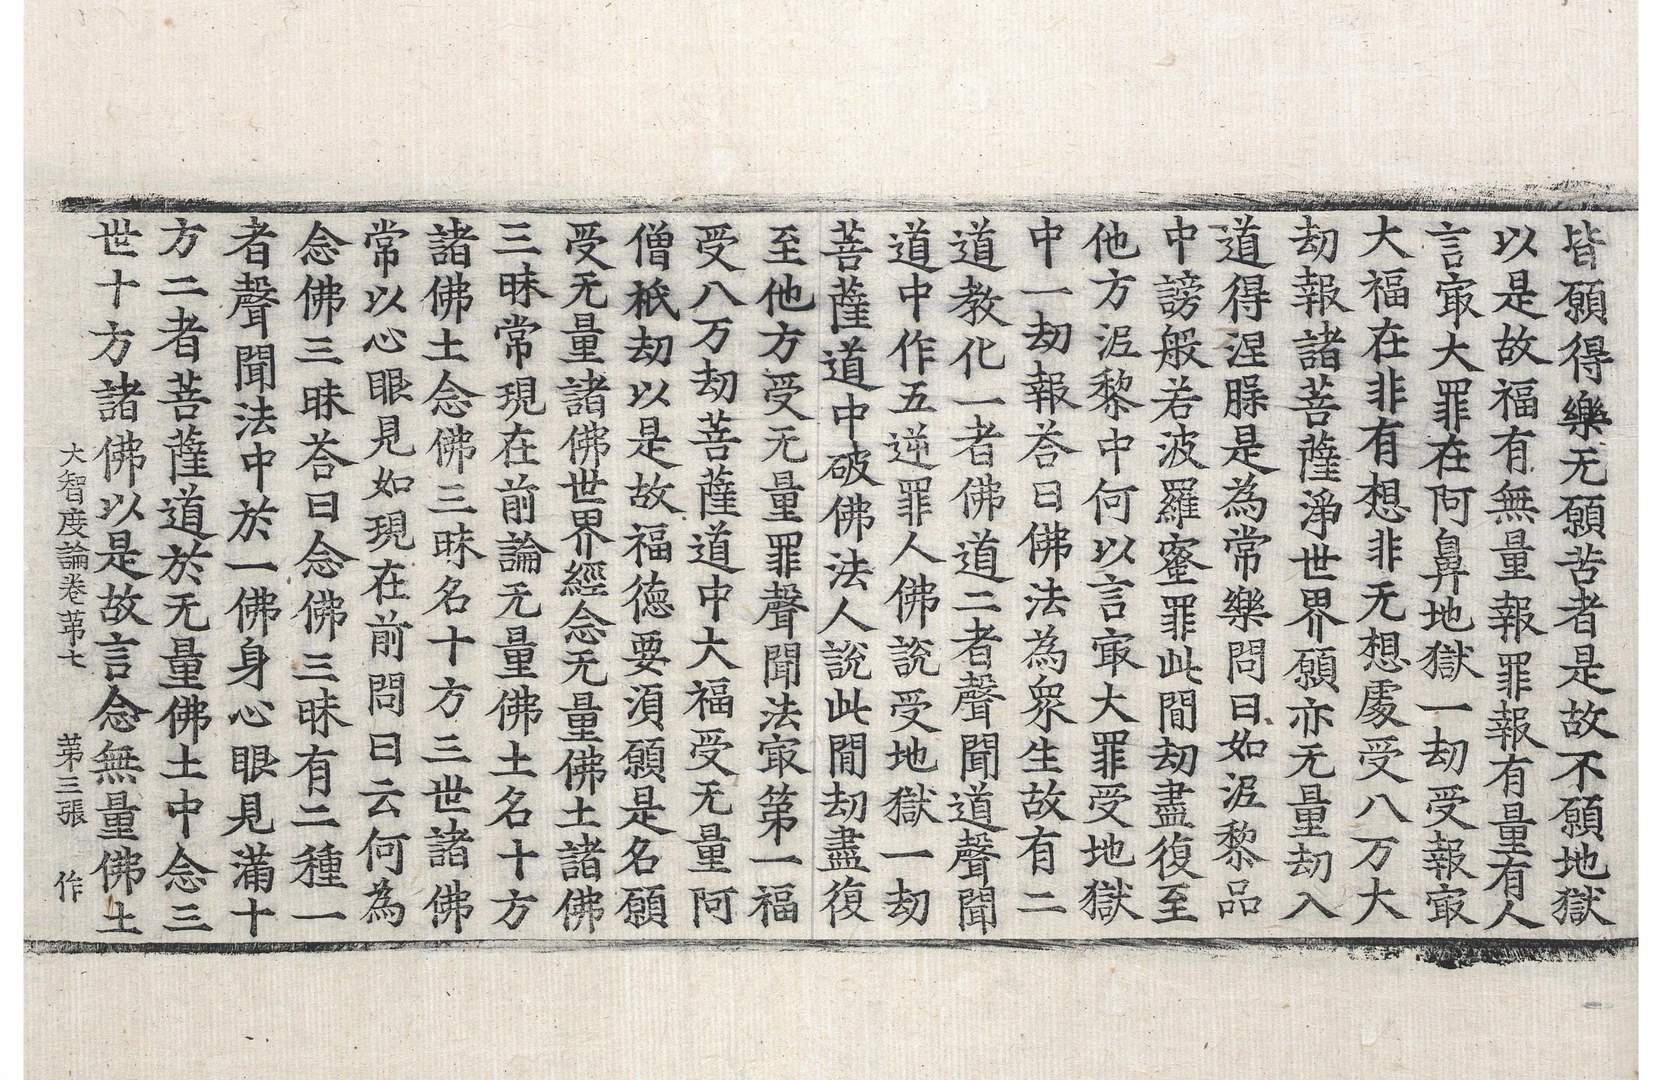 皆願得樂无願苦者是故不願地獄
以是故福有無量報罪報有量有人
言㝡大罪在阿鼻地獄一劫受報㝡
大福在非有想非无想處受八万大
劫報諸菩薩淨世界願亦无量劫入
道得涅槃是為常樂問曰如泥黎品
中謗般若波羅蜜罪此間劫盡復至
他方泥黎中何以言㝡大罪受地獄
中一劫報荅曰佛法為衆生故有二
道教化一者佛道二者聲聞道聲聞
道中作五逆罪人佛說受地獄一劫
菩薩道中破佛法人說此間劫盡復
至他方受无量罪聲聞法㝡第一福
受八万劫菩薩道中大福受无量阿
僧祇劫以是故福德要湏願是名願
受无量諸佛世界經念无量佛土諸佛
三昧常現在前論无量佛土名十方
諸佛土念佛三昧名十方三世諸佛
常以心眼見如現在前問曰云何為
念佛三昧荅曰念佛三昧有二種一
者聲聞法中於一佛身心眼見滿十
方二者菩薩道於无量佛土中念三
世十方諸佛以是故言念無量佛土
大智度論卷苐七　苐三張　作